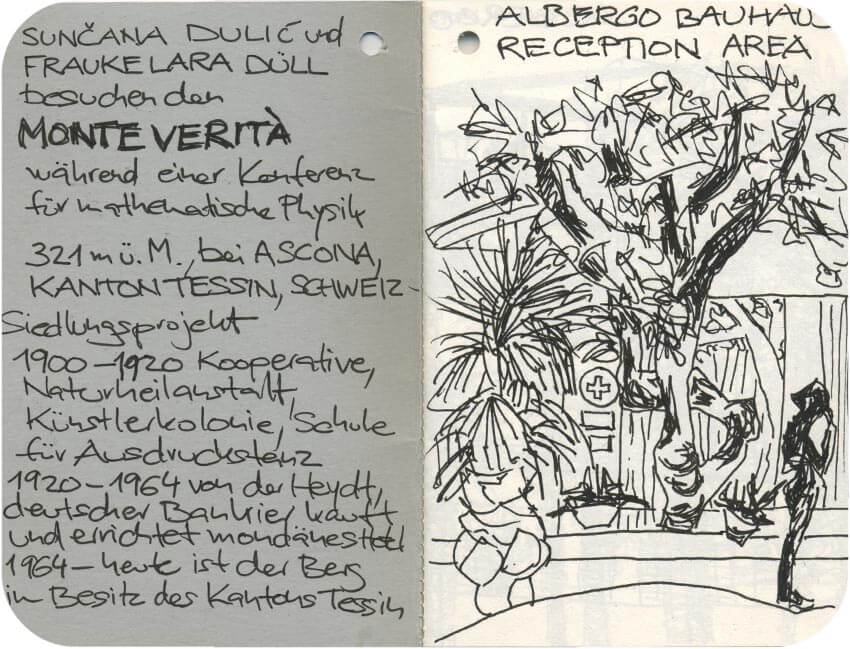 SUNČANA DULIĆ und
FRAUKE LARA DÜLL
besuchen den
MONTE VERITÀ
während einer Konferenz
für mathematische Physik
321 m ü. M., bei ASCONA,
KANTON TESSIN, SCHWEIZ -
Siedlungsprojekt
1900 – 1920 Kooperative,
Naturheilanstalt,
Künstlerkolonie, Schule
für Ausdruckstanz
1920 – 1964 von der Heydt,
deutscher Bankier kauft
und errichtet mondänes Hotel
1964 – heute ist der Berg
im Besitz des Kantons Tessin
ALBERGO BAUHAU
RECEPTION AREA